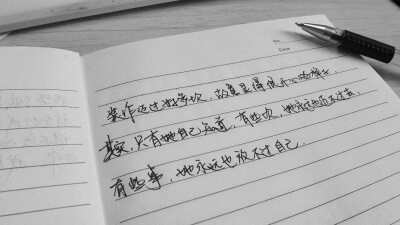 No.
Date.
装作经过好多次，故意显得很开心的样子。
其实，只有她自己知道，有些坎，她永远也迈不过去，
有些事，她永远也放不过自己.